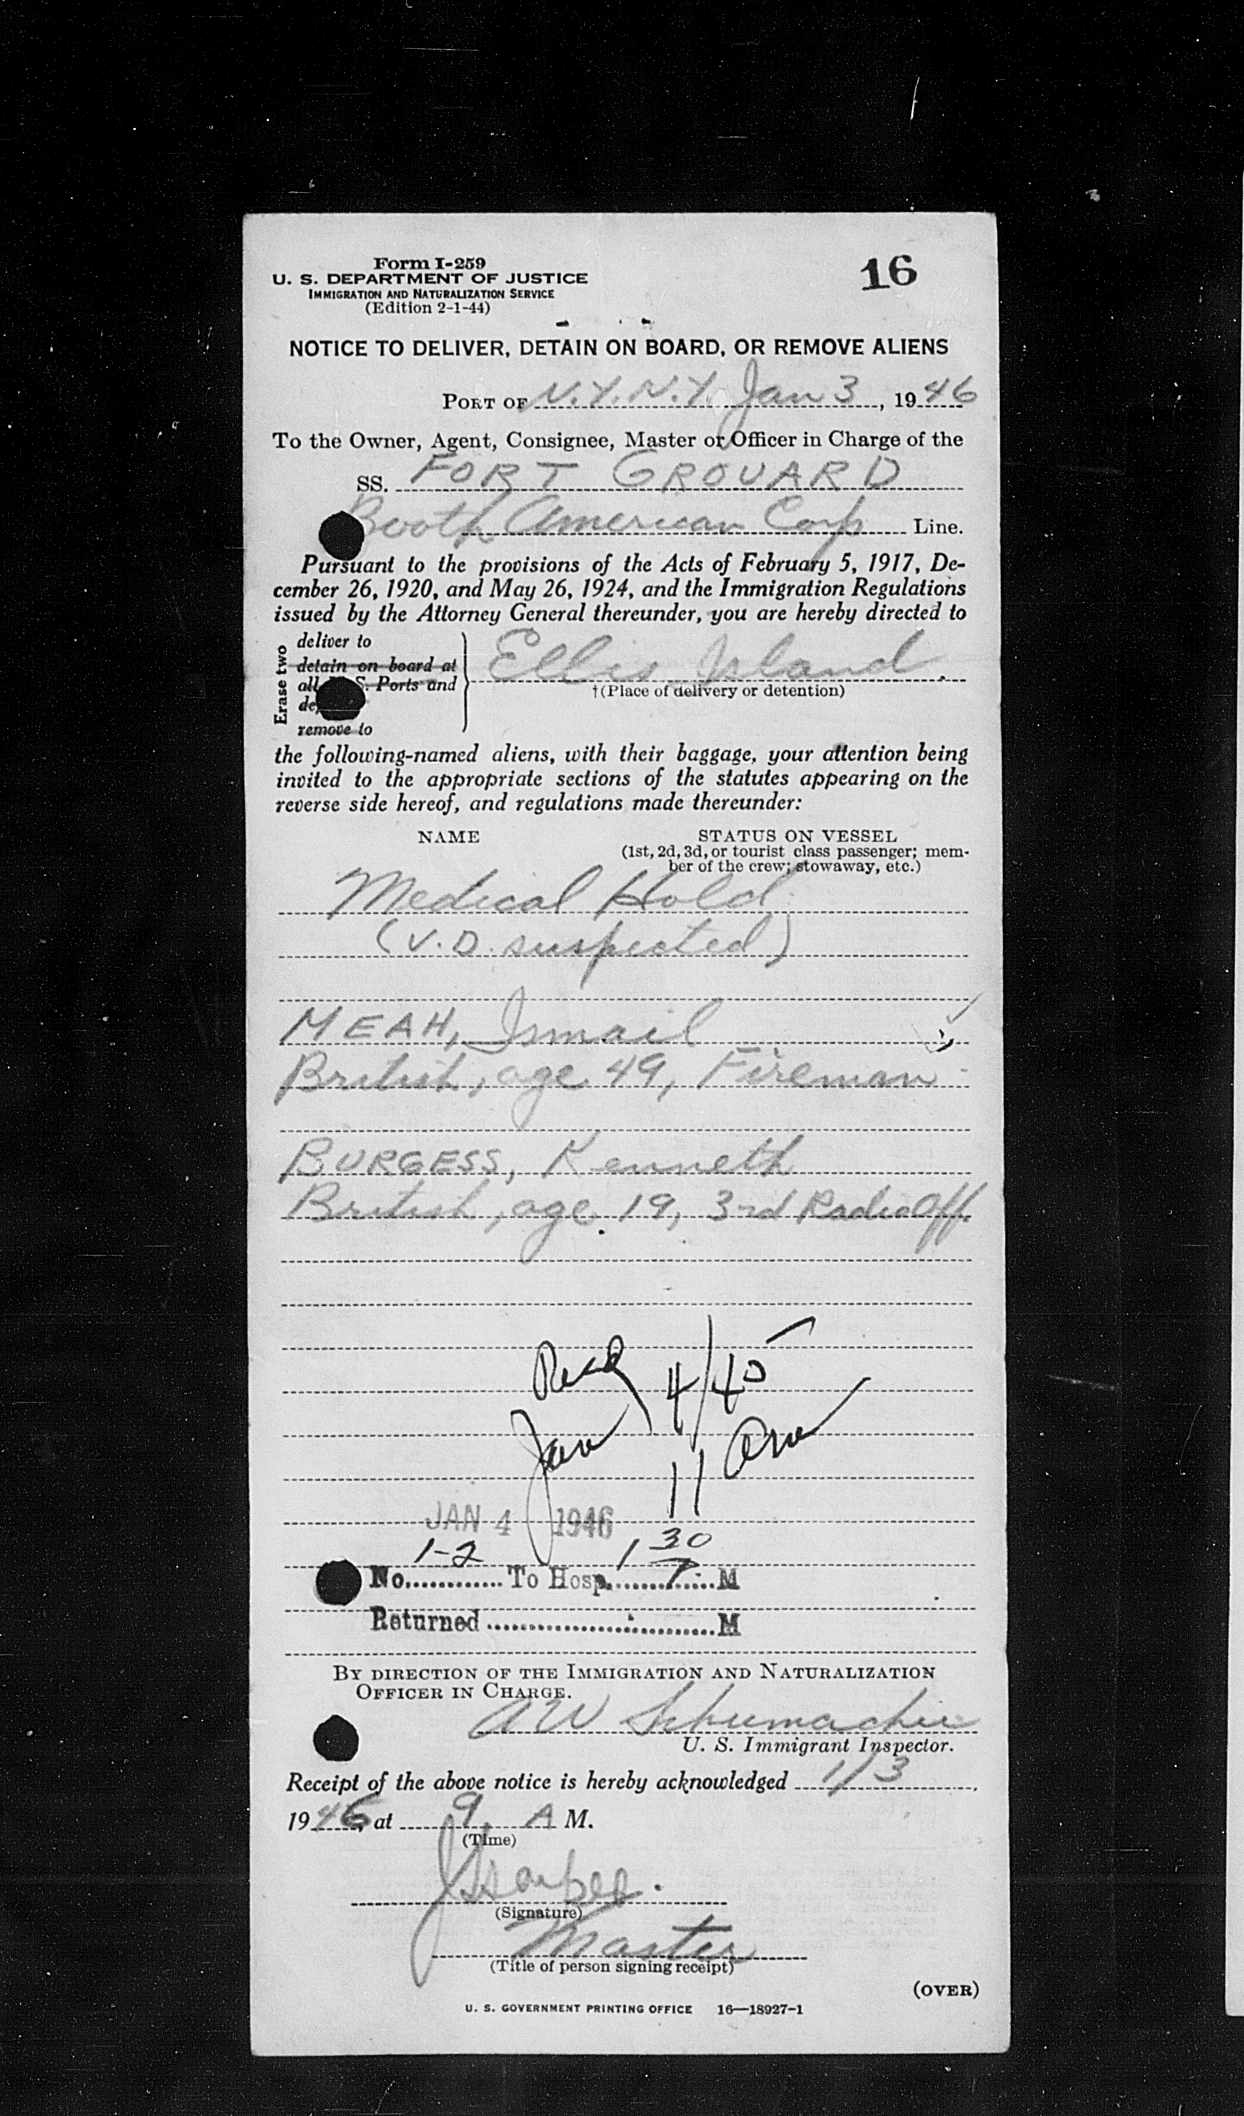 Form I-259
U. S. DEPARTMENT OF JUSTICE
IMMIGRATION AND NATURALIZATION SERVICE
(Edition 2-1-44)
16
NOTICE TO DELIVER, DETAIN ON BOARD, OR REMOVE ALIENS
PORT OF N.Y. N.Y. Jan 3, 1946
To the Owner, Agent, Consignee, Master or Officer in Charge of the
SS. FORT GROUARD
Booth American Corp Line.
Pursuant to the provisions of the Acts of February 5, 1917, De-
cember 26, 1920, and May 26, 1924, and the Immigration Regulations
issued by the Attorney General thereunder, you are hereby directed to
Erase two
deliver to
detain on board at
all S. Ports and
remove to
Ellis Island.
†(Place of delivery or detention)
the following-named aliens, with their baggage, your attention being
invited to the appropriate sections of the statutes appearing on the
reverse side hereof, and regulations made thereunder:
NAME STATUS ON VESSEL
(1st, 2d, 3d, or tourist class passenger; mem-
ber of the crew; stowaway, etc.)
Medical Hold
(V.D. suspected)
MEAH, Ismail
British, age 49, Fireman
BURGESS, Kenneth
British, age 19, 3rd Radio Off.
Recd
Jan 4/45
11 am
JAN 4 1946
1-2 1 30
No. To Hosp. M
Returned M
BY DIRECTION OF THE IMMIGRATION AND NATURALIZATION
OFFICER IN CHARGE.
A W Schumacher
U. S. Immigrant Inspector.
Receipt of the above notice is hereby acknowledged 1/3,
1946, at 9 A M.
(Time)
(Signature)
Master
(Title of person signing receipt)
(OVER)
U. S. GOVERNMENT PRINTING OFFICE 16—18927-1